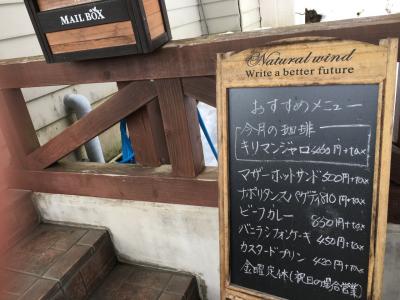 MAIL BOX
Natural wind
Write a better future
おすすめメニュー
今月の珈琲
キリマンジャロ 460円+tax
マザーホットサンド 500円+tax
ナポリタンスパゲティ 810円+tax
ビーフカレー 830円+tax
バニラシフォンケーキ 450円+tax
カスタードプリン 420円+tax
金曜定休(祝日の場合営業)